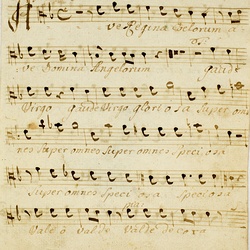 A ve Regina Coelorum a
ve Domina Angelorum gaude
Virgo gaude Virgo glori o sa Super omnes
nes Super omnes Super omnes Speci osa
Super omnes Speci osa Speciosa
Vale o Valde Valde decora